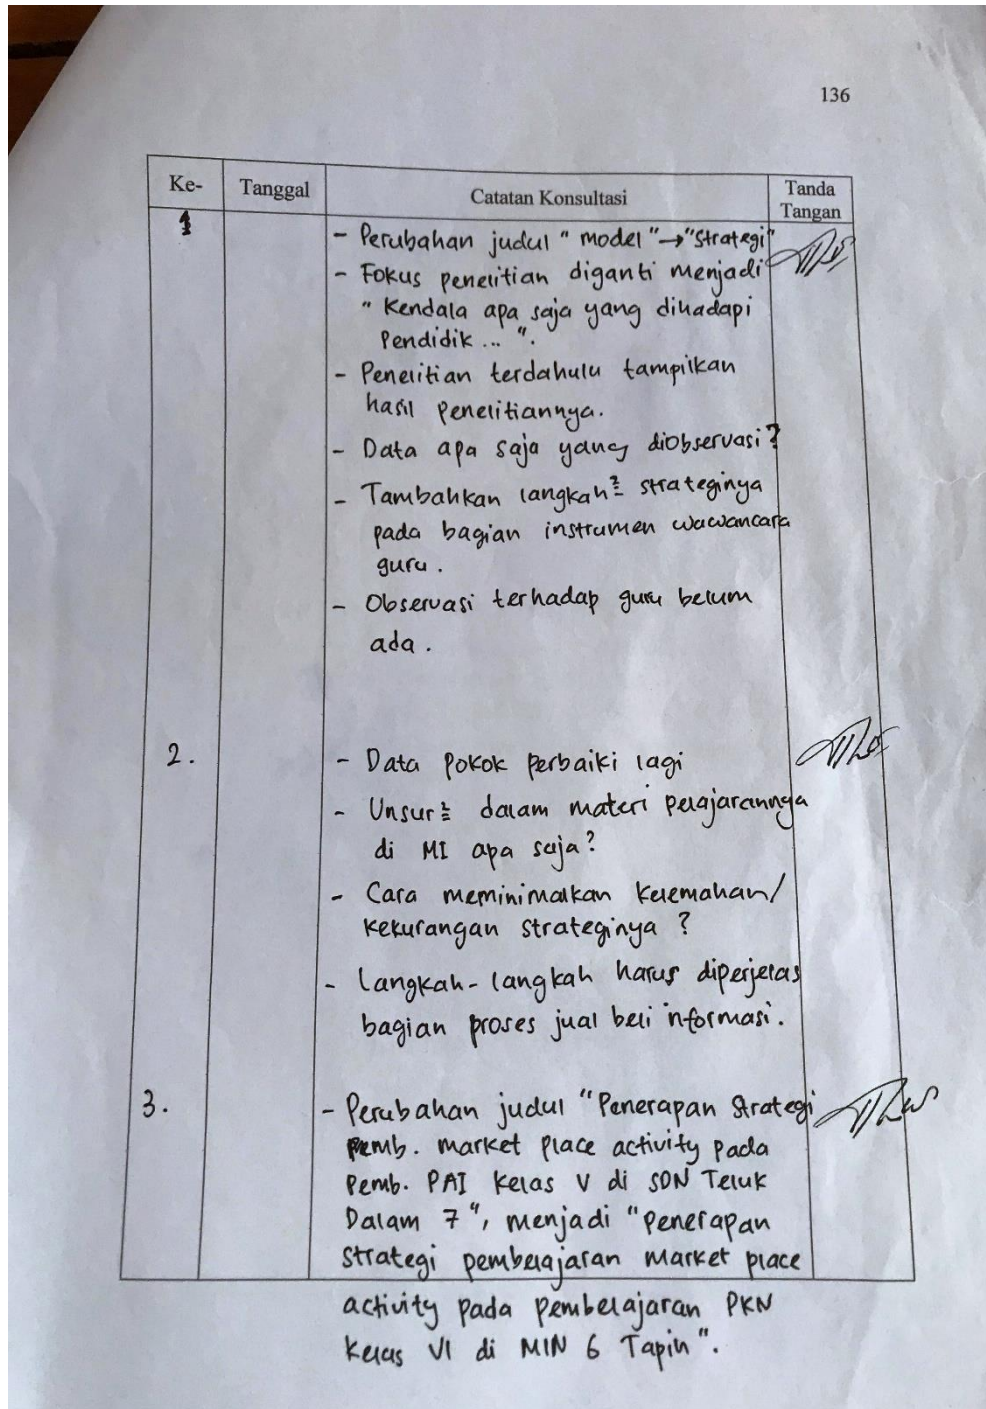 136
Ke- Tanggal Catatan Konsultasi Tanda
Tangan
1
- Perubahan judul " model " → "Strategi"
- Fokus penelitian diganti menjadi
" Kendala apa saja yang dihadapi
Pendidik ... ".
- Penelitian terdahulu tampilkan
hasil penelitiannya.
- Data apa saja yang diobservasi?
- Tambahkan langkah² strateginya
pada bagian instrumen wawancara
guru .
- Observasi terhadap guru belum
ada .
2.
- Data pokok perbaiki lagi
- Unsur² dalam materi pelajarannya
di MI apa saja?
- Cara meminimalkan kelemahan/
kekurangan strateginya ?
- Langkah-langkah harus diperjelas
bagian proses jual beli informasi.
3.
- Perubahan judul "Penerapan Strategi
Pemb. market place activity pada
Pemb. PAI Kelas V di SDN Teluk
Dalam 7", menjadi "Penerapan
strategi pembelajaran market place
activity pada pembelajaran PKN
Kelas VI di MIN 6 Tapin".